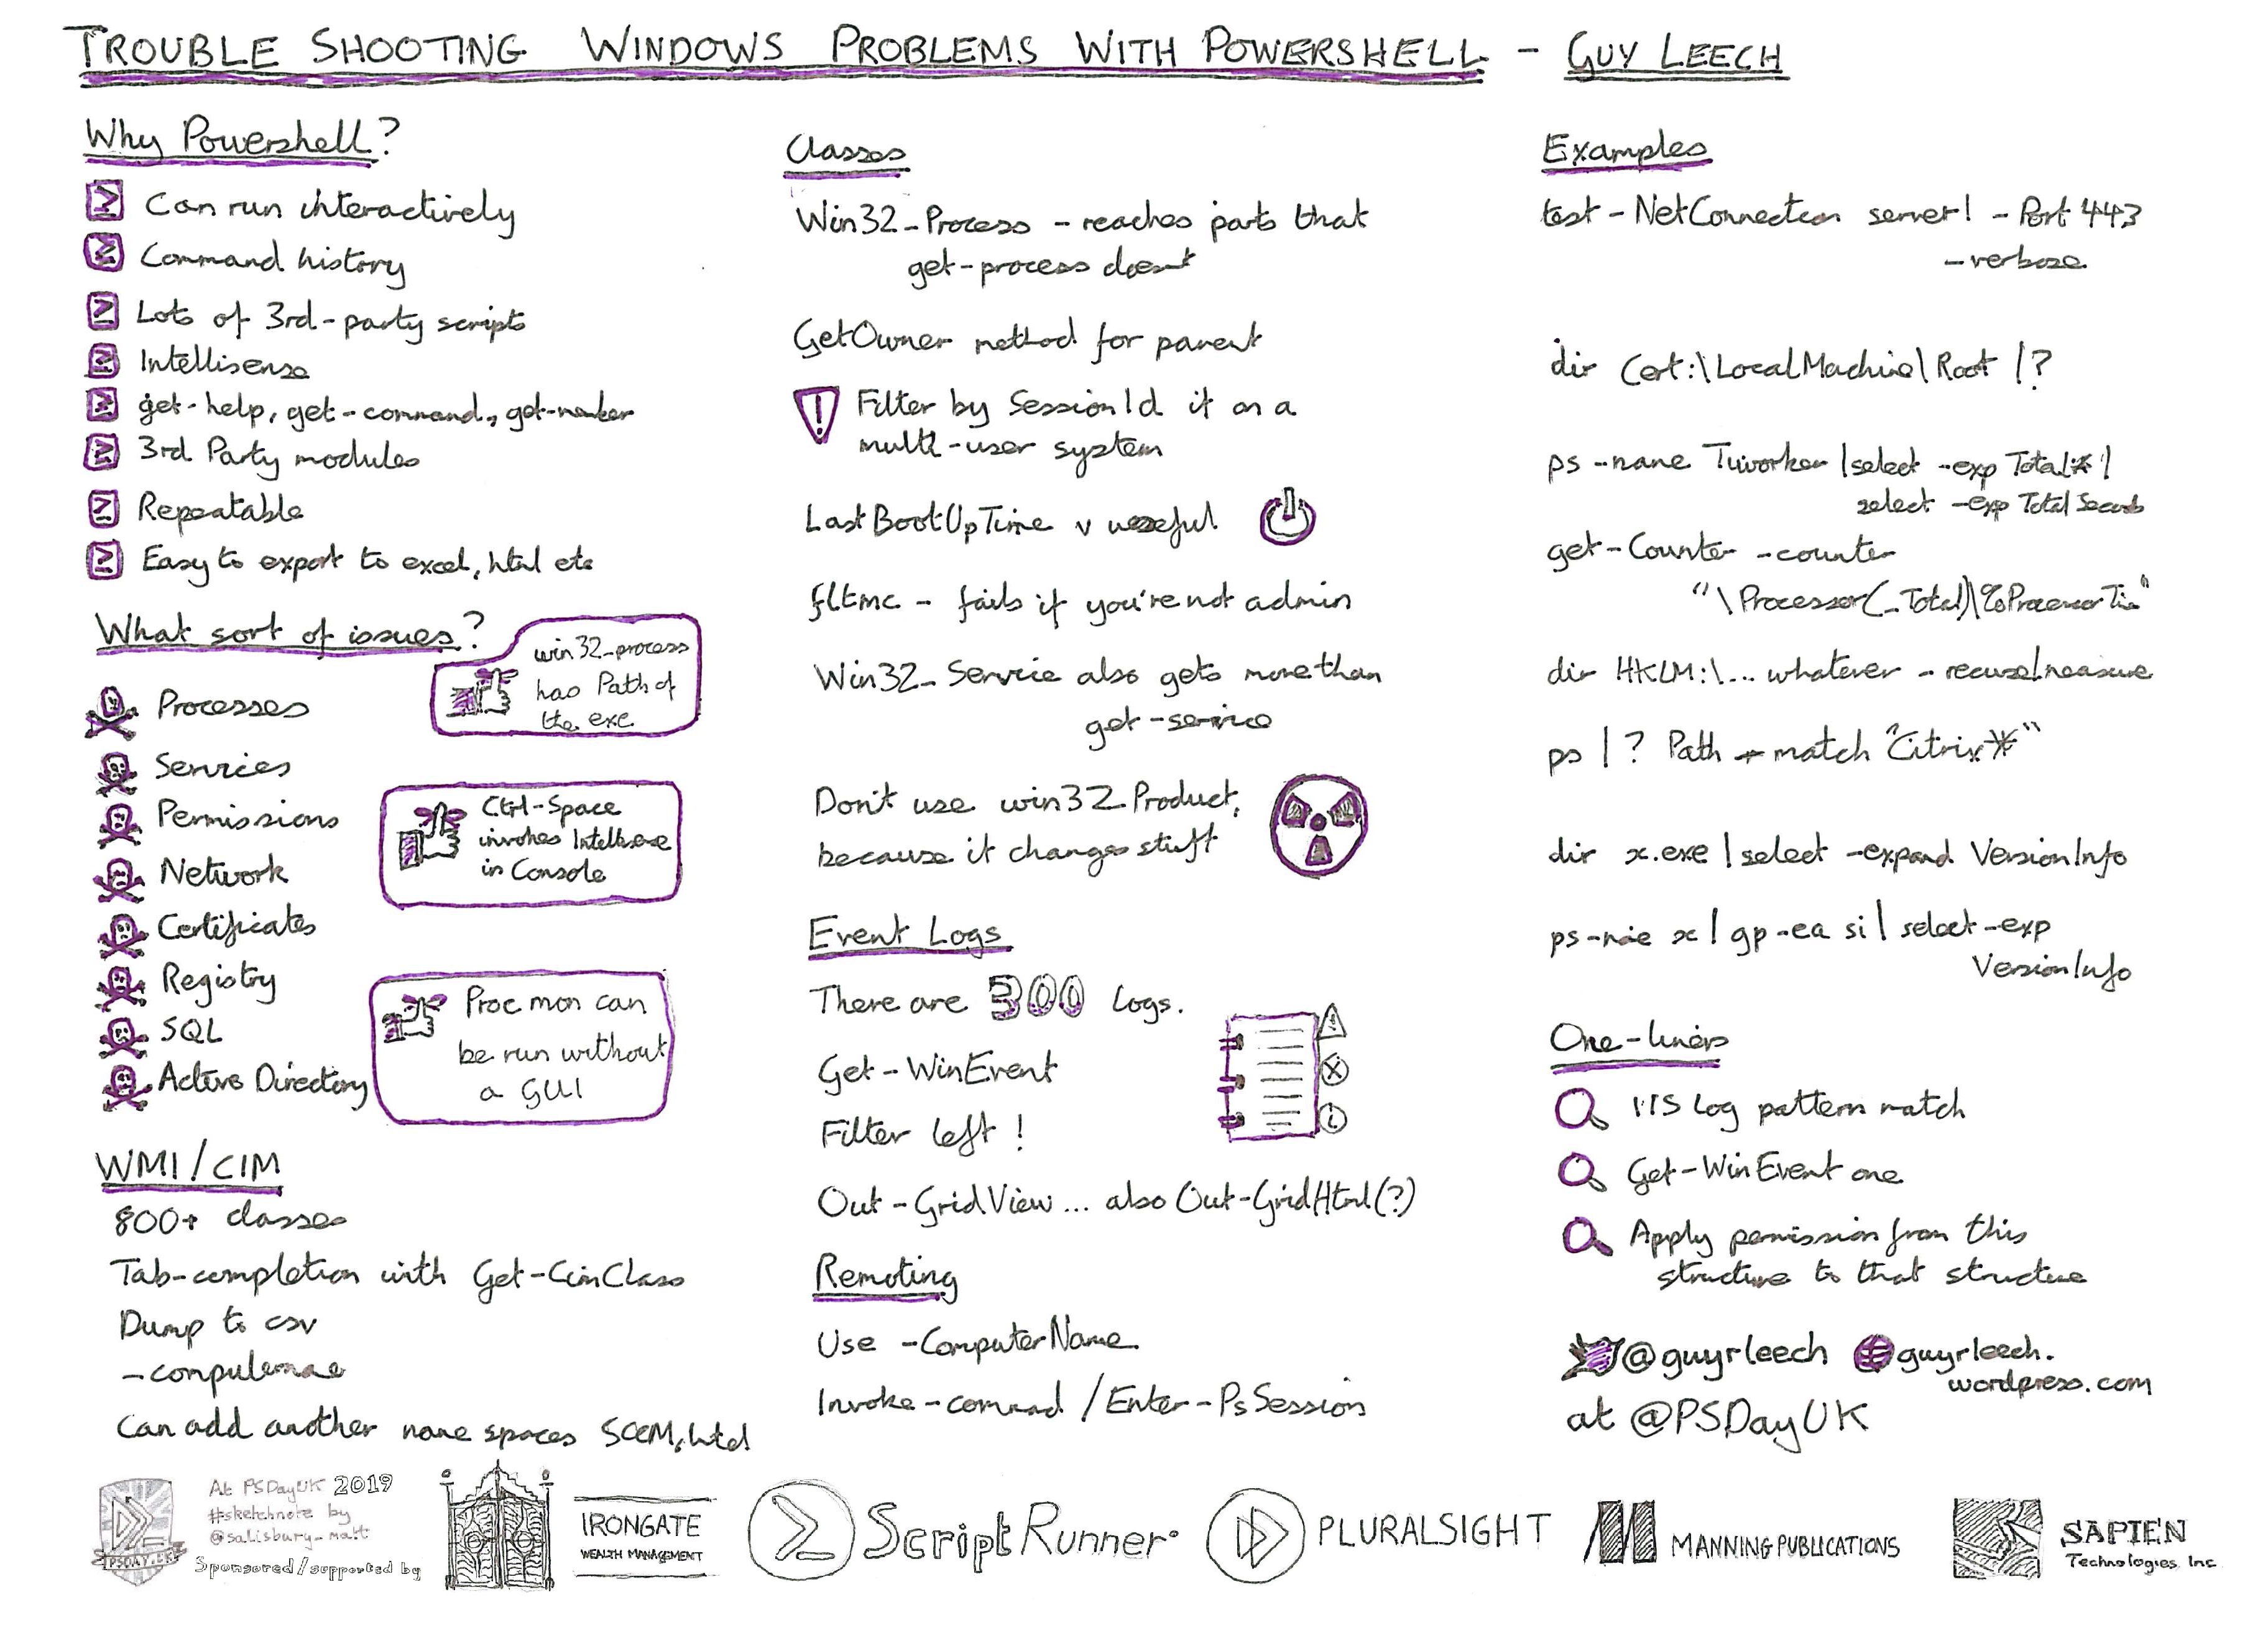 TROUBLE SHOOTING WINDOWS PROBLEMS WITH POWERSHELL - GUY LEECH
Why Powershell?
Can run interactively
Command history
Lots of 3rd-party scripts
Intellisense
get-help, get-command,
3rd Party modules
Repeatable
Easy to export to excel, html etc
What sort of issues?
win32_process
has Path of
the exe
Processes
Services
Permissions
Network
Certificates
Registry
SQL
Active Directory
Ctrl-Space
invokes Intellisense
in Console
Proc mon can
be run without
a GUI
WMI/CIM
800+ classes
Tab-completion with Get-CimClass
Dump to csv
Can add another name spaces SCCM,
Classes
Win32_Process - reaches parts that
get-process doesnt
GetOwner method for parent
Filter by SessionId if on a
multi-user system
LastBootUpTime v useful
fltmc - fails if you're not admin
Win32_Service also gets more than
get-service
Don't use win32_Product,
because it changes stuff
Event Logs
There are 300 logs.
Get-WinEvent
Filter left!
Out-GridView... also Out-GridHtml(?)
Remoting
Use -ComputerName
Invoke-command / Enter-PsSession
Examples
test-NetConnection server1 -Port 443
-verbose
dir Cert:\LocalMachine\Root |?
ps -name Tiworker |select -exp Total* |
select -exp TotalSeconds
get-Counter -counter
"\Processor(_Total)\%Processor Time"
dir HKLM:\... whatever -recurse|measure
ps | ? Path -match "Citrix*"
dir x.exe | select -expand VersionInfo
ps x | gp -ea si | select -exp
VersionInfo
One-liners
IIS Log pattern match
Get-WinEvent one
Apply permission from this
structure to that structure
@guyrleech guyrleech.
wordpress.com
at @PSDayUK
PSDAY.UK
At PSDayUK 2019
#sketchnote by
@salisbury_matt
Sponsored/supported by
IRONGATE
WEALTH MANAGEMENT
ScriptRunner
PLURALSIGHT
MANNING PUBLICATIONS
SAPIEN
Technologies, Inc